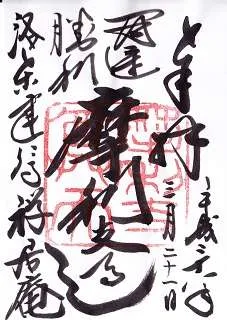 奉拝
平成二六年
三月二十一日
開運
勝利
摩利支天
洛東建仁寺
禅居庵